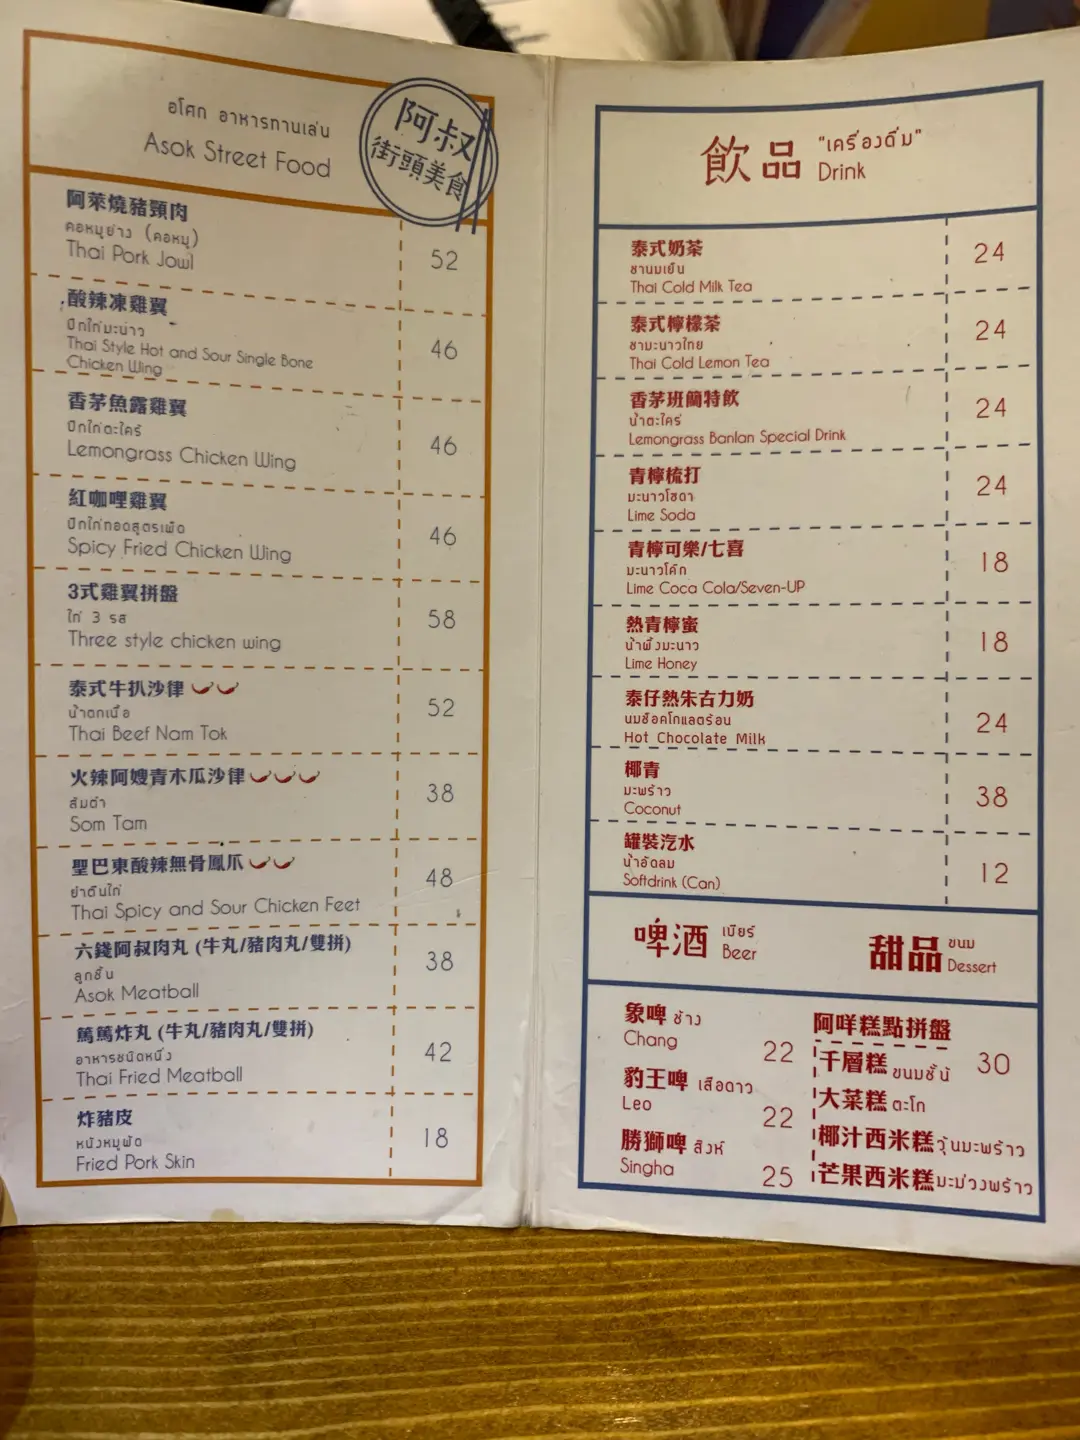 อโศก อาหารทานเล่น
Asok Street Food
阿叔
街頭美食
阿萊燒豬頸肉
คอหมูย่าง (คอหมู)
Thai Pork Jowl
52
酸辣凍雞翼
ปีกไก่มะนาว
Thai Style Hot and Sour Single Bone
Chicken Wing
46
香茅魚露雞翼
ปีกไก่ตะไคร้
Lemongrass Chicken Wing
46
紅咖哩雞翼
ปีกไก่ทอดสูตรเผ็ด
Spicy Fried Chicken Wing
46
3式雞翼拼盤
ไก่ 3 รส
Three style chicken wing
58
泰式牛扒沙律
น้ำตกเนื้อ
Thai Beef Nam Tok
52
火辣阿嫂青木瓜沙律
ส้มตำ
Som Tam
38
聖巴東酸辣無骨鳳爪
ยำตีนไก่
Thai Spicy and Sour Chicken Feet
48
六錢阿叔肉丸 (牛丸/豬肉丸/雙拼)
ลูกชิ้น
Asok Meatball
38
篤篤炸丸 (牛丸/豬肉丸/雙拼)
อาหารชนิดหนึ่ง
Thai Fried Meatball
42
炸豬皮
หนังหมูผัด
Fried Pork Skin
18
飲品 "เครื่องดื่ม"
Drink
泰式奶茶
ชานมเย็น
Thai Cold Milk Tea
24
泰式檸檬茶
ชามะนาวไทย
Thai Cold Lemon Tea
24
香茅班蘭特飲
น้ำตะไคร่
Lemongrass Banlan Special Drink
24
青檸梳打
มะนาวโซดา
Lime Soda
24
青檸可樂/七喜
มะนาวโค๊ก
Lime Coca Cola/Seven-UP
18
熱青檸蜜
น้ำผึ้งมะนาว
Lime Honey
18
泰仔熱朱古力奶
นมช๊อคโกแลตร้อน
Hot Chocolate Milk
24
椰青
มะพร้าว
Coconut
38
罐裝汽水
น้ำอัดลม
Softdrink (Can)
12
啤酒 เบียร์
Beer
甜品 ขนม
Dessert
象啤 ช้าง
Chang
22
豹王啤 เสือดาว
Leo
22
勝獅啤 สิงห์
Singha
25
阿咩糕點拼盤
30
千層糕 ขนมชั้น
大菜糕 ตะโก
椰汁西米糕 วุ้นมะพร้าว
芒果西米糕 มะม่วงพร้าว